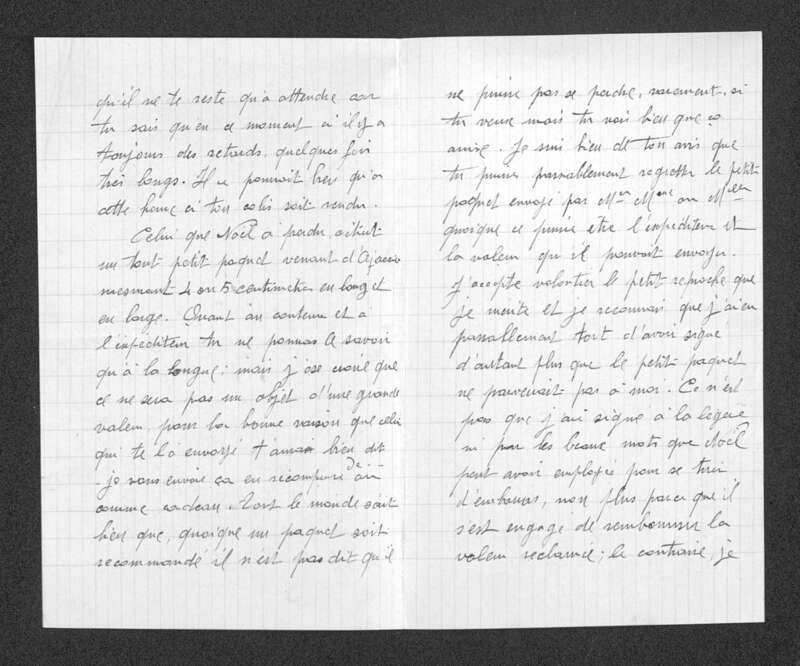 qu'il ne te reste qu'à attendre car
tu sais qu'en ce moment ci il y a
toujours des retards, quelques fois
très longs. Il se pourrait bien qu'à
cette heure ci ton colis soit rendu.
Celui que Noël à perdu, c'était
un tout petit paquet venant d'Ajaccio
mesurant 4 ou 5 centimètres en long et
en large. Quant au contenu et a
l'expéditeur tu ne pourras le savoir
qu'à la longue; mais j'ose croire que
ce ne sera pas un objet d'une grande
valeur, pour la bonne raison que celui
qui te l'a envoyé t'aurais bien dit
- je vous envoie ça en récompense
comme cadeau. Tout le monde sait
bien que, quoique un paquet soit
recommandé il n'est pas dit qu'il
ne puisse pas se perdre, rarement, si
tu veux mais tu vois bien que ça
arrive. Je suis bien de ton avis que
tu puisse passablement regretter le petit
paquet envoyé par Mr Mme ou Melle
quoique ce puisse etre l'expéditeur et
la valeur qu'il pouvait envoyer.
J'accepte volontier le petit reproche que
je mérite et je reconnais que j'ai eu
passablement tort d'avoir signé
d'autant plus que le petit paquet
ne parvenait pas à moi. Ce n'est
pas que j'ai signé à la légère
ni par les beaux mots que Noël
peut avoir employée pour se tirer
d'embarras, non plus parce que il
s'est engagé de rembourser la
valeur réclamée; le contraire, je